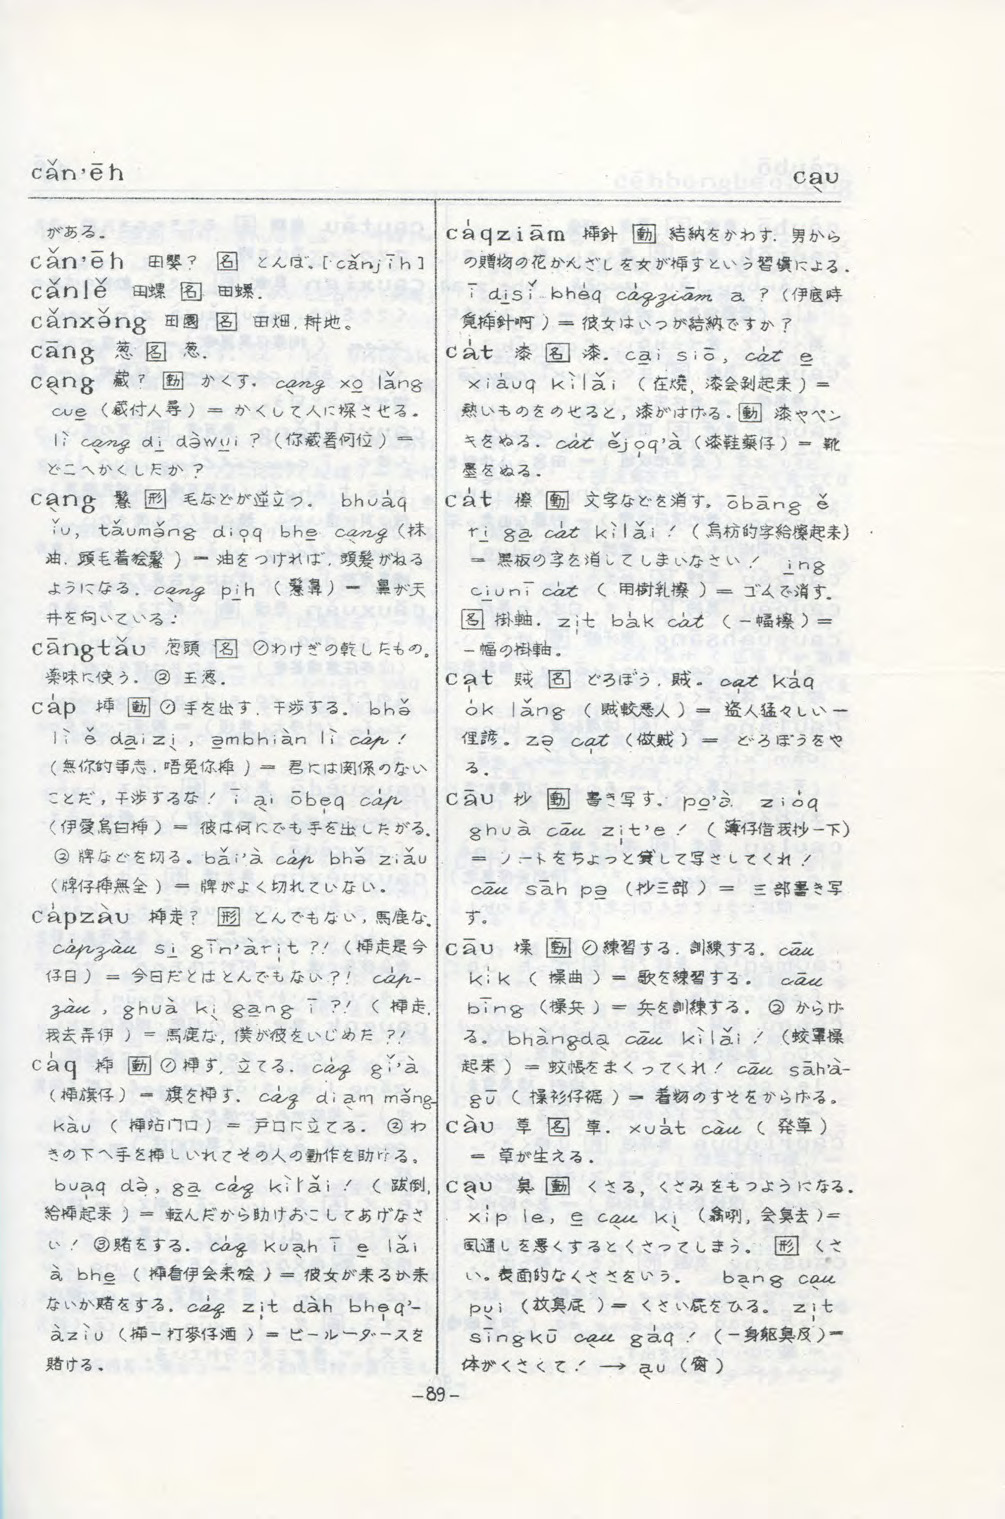 căn'ēh
ca̱u
がある。
căn'ēh 田嬰? 名 とんぼ。[cănjīh]
cănlě 田螺 名 田螺.
cănxǎng 田園 名 田畑, 耕地。
cāng 葱 名 葱.
ca̱ng 蔵? 動 かくす. ca̱ng xo̱ lǎng
cue̱ (蔵付人尋) = かくして人に探させる。
lì ca̱ng di̱ dàwu̱i ? (你蔵着何位) =
どこへかくしたか?
ca̱ng 鬃 形 毛などが逆立つ. bhuáq
ĭu, tăumǎng dio̱q bhe̱ ca̱ng (抹
油, 頭毛着𣍐鬃 ) = 油をつければ, 頭髪がねる
ようになる. ca̱ng pi̱h ( 鬃鼻) = 鼻が天
井を向いている.
cāngtău 葱頭 名 ①わけぎの乾したもの。
薬味に使う. ② 玉葱.
cáp 揷 動 ①手を出す, 干渉する. bhǒ
lì ě da̱izi̱ , a̱mbhiàn lì cáp !
(無你的事志, 唔免你揷 ) = 君には関係のない
ことだ, 干渉するな! ī a̱i ōbe̱q cáp
(伊愛烏白揷) = 彼は何にでも手を出したがる.
② 牌などを切る。băi'à cáp bhǒ ziău
(牌仔揷無全 ) = 牌がよく切れていない.
cápzàu 揷走? 形 とんでもない, 馬鹿な.
cápzàu si̱ gīn'àri̍t ?! (揷走是今
仔日) = 今日だとはとんでもない?! cáp-
zàu , ghuà ki̱ ga̱ng ī ?! ( 揷走,
我去弄伊 ) = 馬鹿な, 僕が彼をいじめた ?!
cáq 揷 動 ①揷す, 立てる. cáq gĭ'à
(揷旗仔) = 旗を揷す. cáq diam mǎng-
kàu ( 揷站门口) = 戸口に立てる. ②わ
きの下へ手を揷しいれてその人の動作を助ける。
bua̍q dà, ga̱ cáq kìlăi ! ( 跋倒,
給揷起来 ) = 転んだから助けおこしてあげなさ
い! ③賭をする. cáq kua̱h ī e̱ lăi
à bhe̱ ( 揷看伊会来𣍐 ) = 彼女が来るか来
ないか賭をする. cáq zi̍t dàh bhe̍q'-
àziù (揷一打麥仔酒 ) = ビール一ダースを
賭ける.
cáqziām 揷針 動 結納をかわす. 男から
の贈物の花かんざしを女が揷すという習慣による.
ī di̱sĭ bhéq cáqziām a ? (伊底時
覓揷針啊 ) = 彼女はいつが結納ですか?
cát 漆 名 漆. ca̱i siō, cát e̱
xiáuq kìlăi ( 在燒, 漆会剝起来 ) =
熱いものをのせると, 漆がはげる. 動 漆やペン
キをぬる. cát ějo̍q'à (漆鞋薬仔) = 靴
墨をぬる.
cát 擦 動 文字などを消す。ōbāng ě
ri̱ ga̱ cát kìlăi ! ( 烏枋的字給擦起来)
= 黒板の字を消してしまいなさい! i̱ng
ci̱unī cát ( 用樹乳擦 ) = ゴムで消す.
名 掛軸. zi̍t bák cát (一幅擦) =
一幅の掛軸.
ca̍t 賊 名 どろぼう, 賊。ca̍t káq
ók lǎng ( 賊較悪人 ) = 盗人猛々しい —
俚諺. zǝ̱ ca̍t (做賊) = どろぼうをや
る.
cāu 抄 動 書き写す. po̱'à zióq
ghuà cāu zi̍t'e ! ( 簿仔借我抄一下)
= ノートをちょっと貸して写さしてくれ!
cāu sāh pǝ̱ (抄三部 ) = 三部書き写
す.
cāu 操 動 ①練習する. 訓練する. cāu
kik ( 操曲 ) = 歌を練習する. cāu
bīng (操兵 ) = 兵を訓練する. ② からげ
る. bhàngda̱ cāu kìlăi ! (蚊罩操
起来 ) = 蚊帳をまくってくれ! cāu sāh'à-
gū ( 操衫仔裾 ) = 着物のすそをからげる.
càu 草 名 草. xuát càu ( 発草 )
= 草が生える.
ca̱u 臭 動 くさる, くさみをもつようになる.
xi̍p le, e̱ ca̱u ki̱ (翕咧, 会臭去 )=
風通しを悪くするとくさってしまう. 形 くさ
い。表面的なくささをいう. ba̱ng ca̱u
pu̱i (放臭屁 )= くさい屁をひる. zi̍t
sīngkū ca̱u gáq ! (一身躯臭及)=
体がくさくて! → a̱u (腐)
-89-